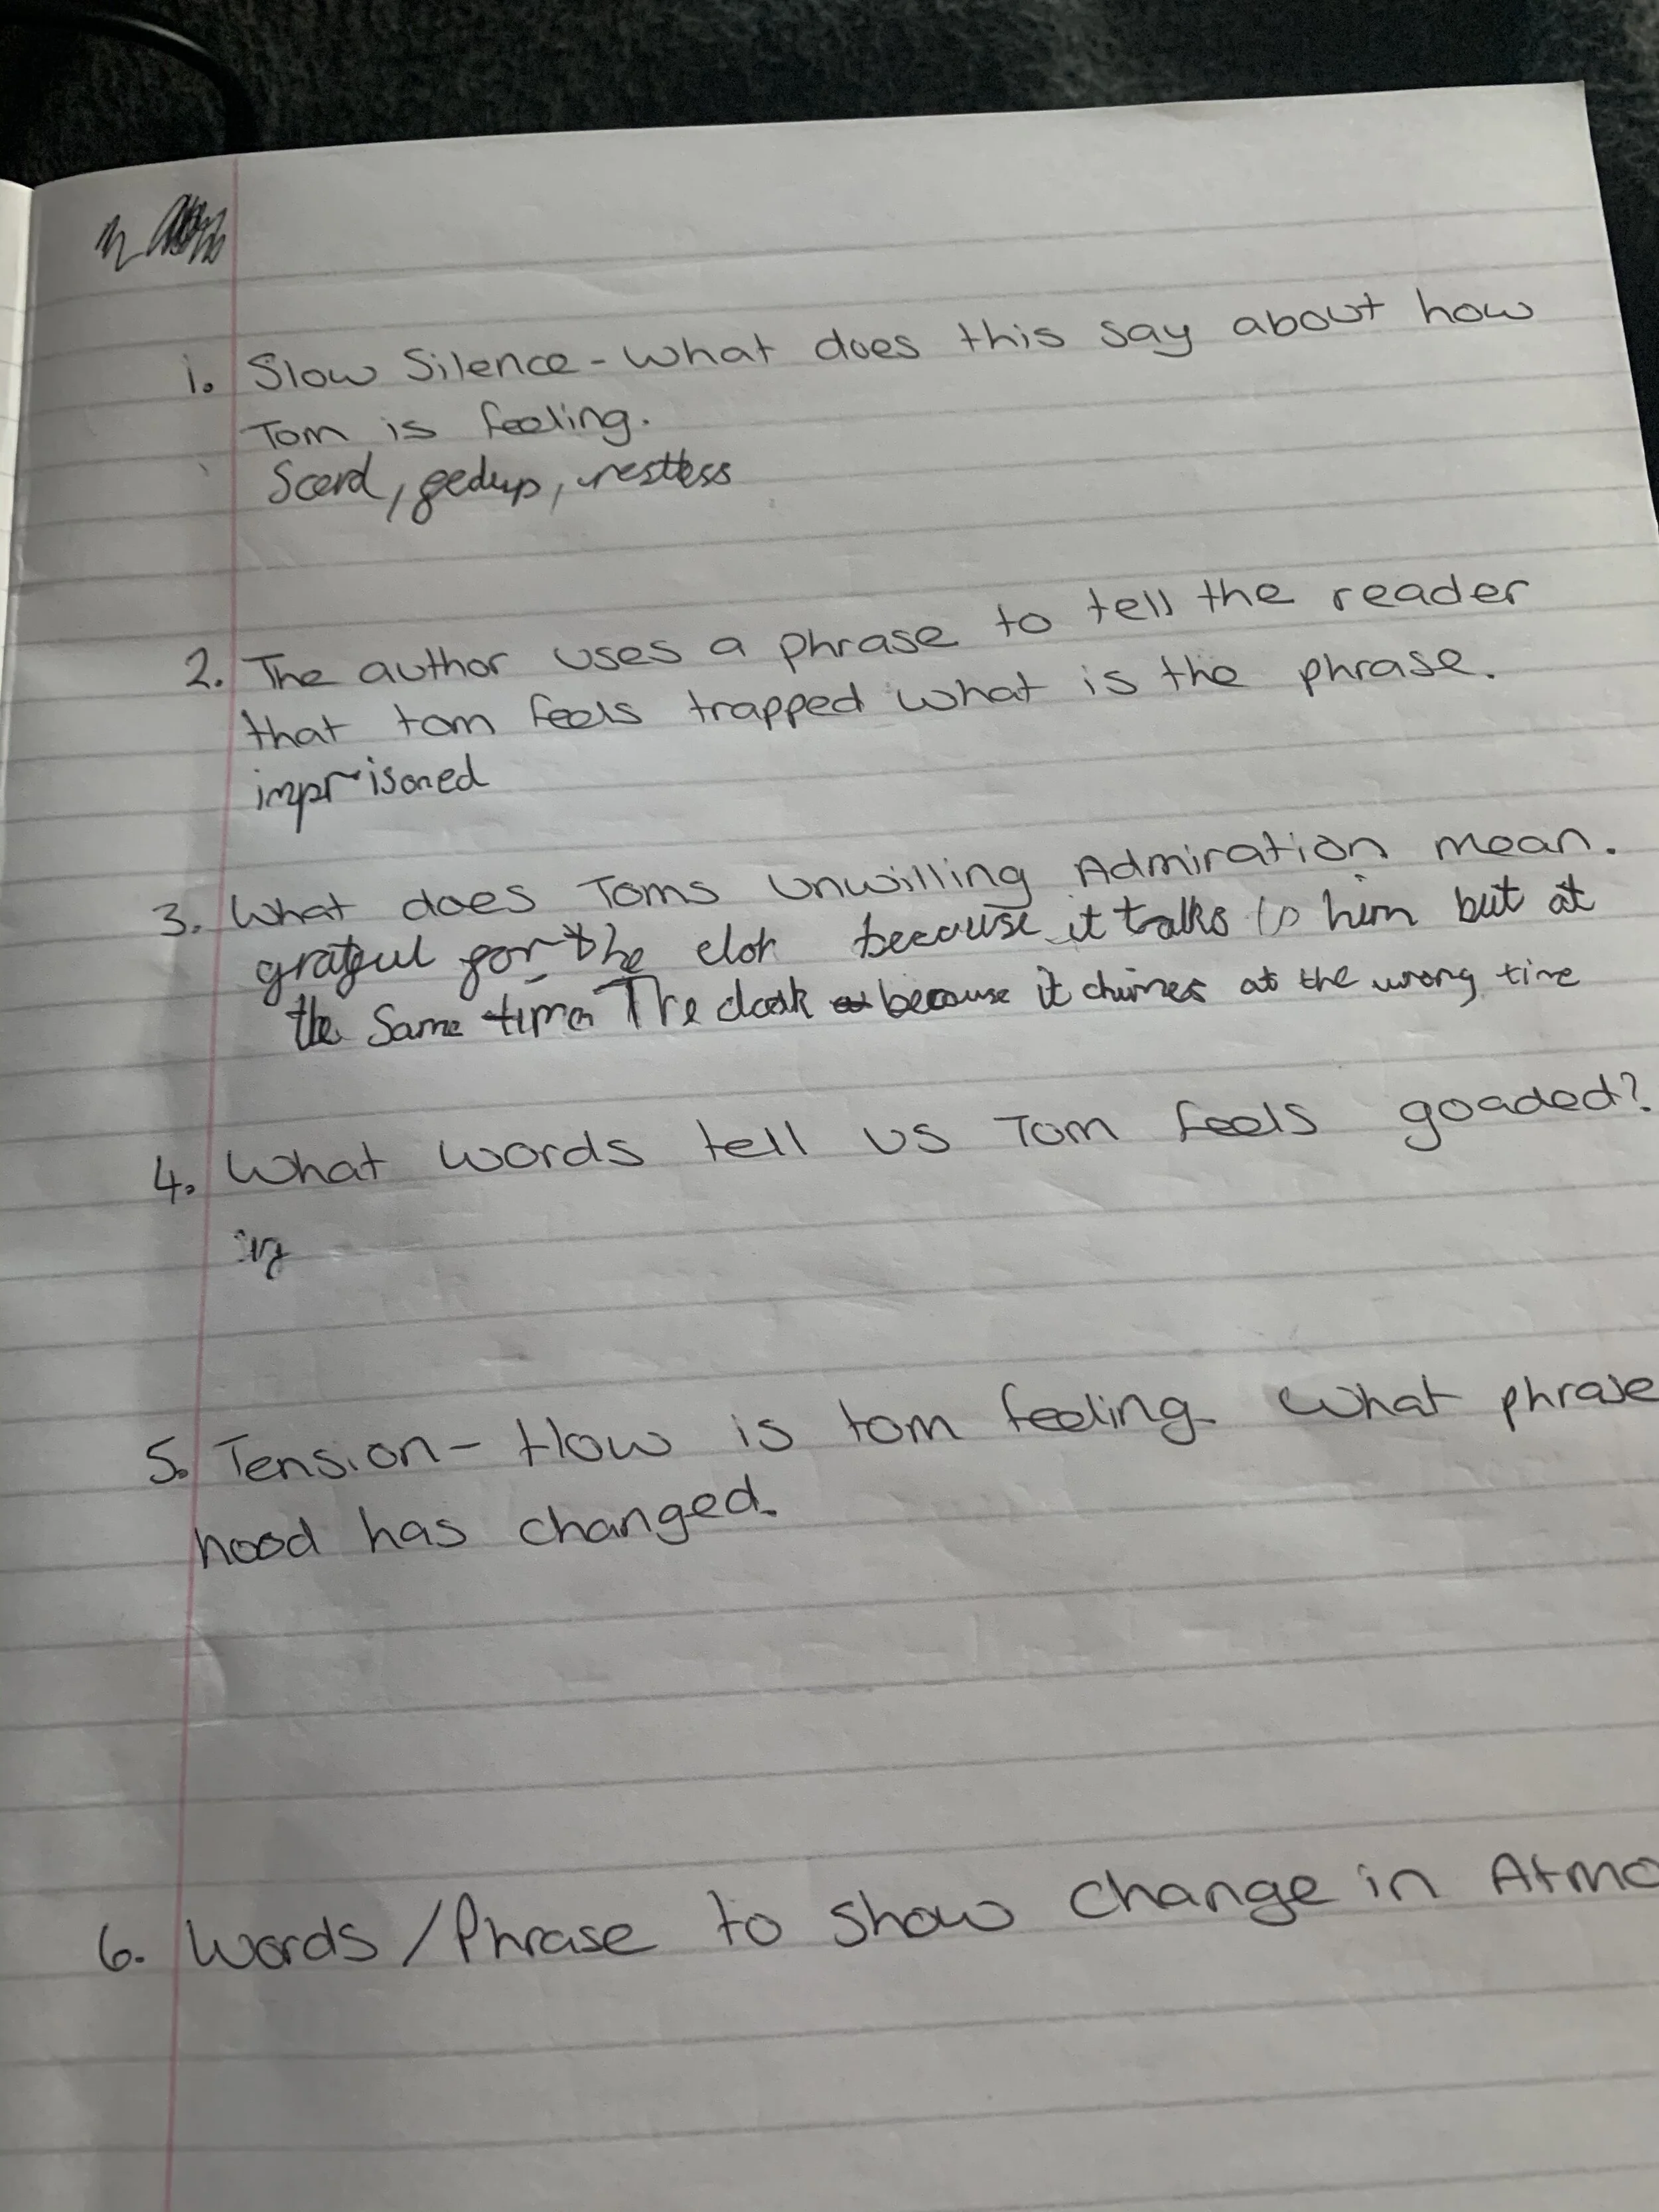 1. Slow Silence - What does this say about how
Tom is feeling.
Scerd, gedup, restless
2. The author uses a phrase to tell the reader
that tom feels trapped what is the phrase.
imprisoned
3. What does Toms Unwilling Admiration mean.
gratgul gor the clok because it talks to him but at
the Same time The clock because it chimes at the wrong time
4. What words tell us Tom feels goaded?
5. Tension - How is tom feeling. What phrase
hood has changed.
6. Words / Phrase to show change in Atmo